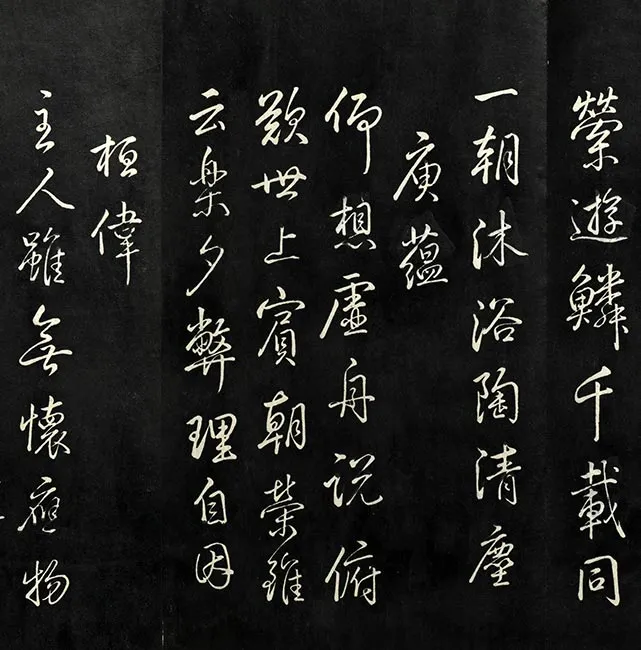 縈遊鱗千載同
一朝沐浴陶清塵
庾蘊
仰想虛舟説俯
歎世上賓朝榮雖
云樂夕弊理自因
桓偉
主人雖無懷應物